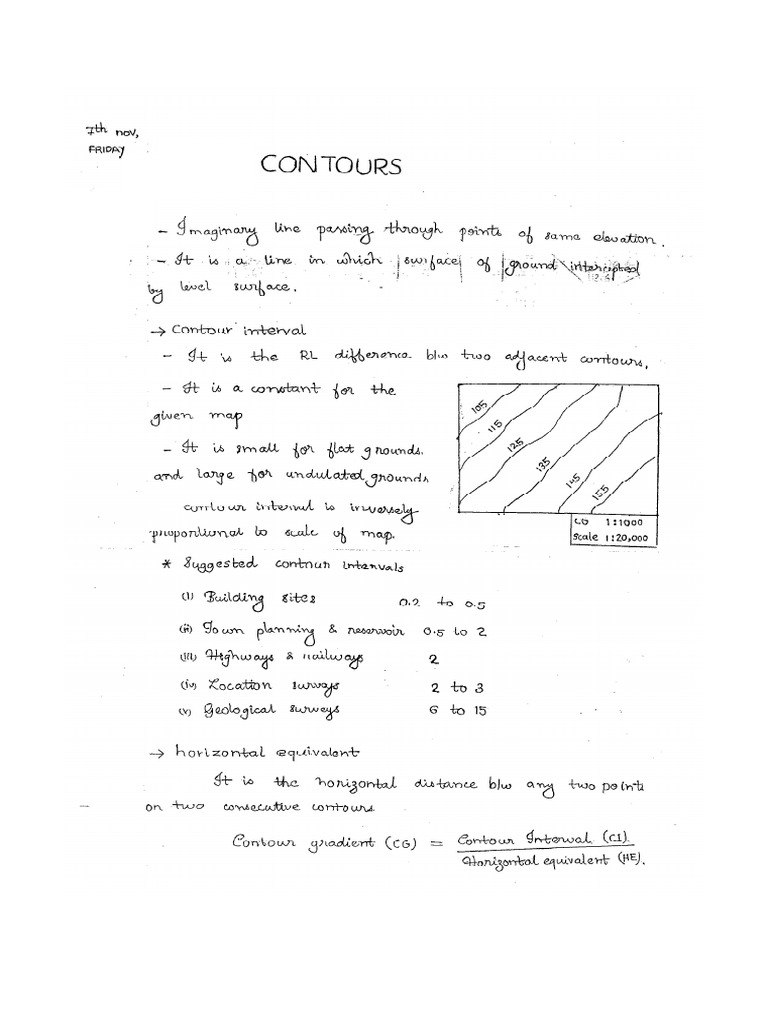 7th nov,
FRIDAY
CONTOURS
- Imaginary line passing through points of same elevation.
- It is a line in which surface of ground intercepted
by level surface.
→ Contour interval
- It is the RL difference b/w two adjacent contours.
- It is a constant for the
given map
- It is small for flat grounds.
and large for undulated grounds
contour interval is inversely
proportional to scale of map.
105
115
125
135
145
155
CG 1:1000
Scale 1:20,000
* Suggested contour intervals
(i) Building sites 0.2 to 0.5
(ii) Town planning & reservoir 0.5 to 2
(iii) Highways & railways 2
(iv) Location surveys 2 to 3
(v) Geological surveys 6 to 15
→ horizontal equivalent
It is the horizontal distance b/w any two points
on two consecutive contours
Contour gradient (CG) = Contour Interval (CI)
Horizontal equivalent (HE).